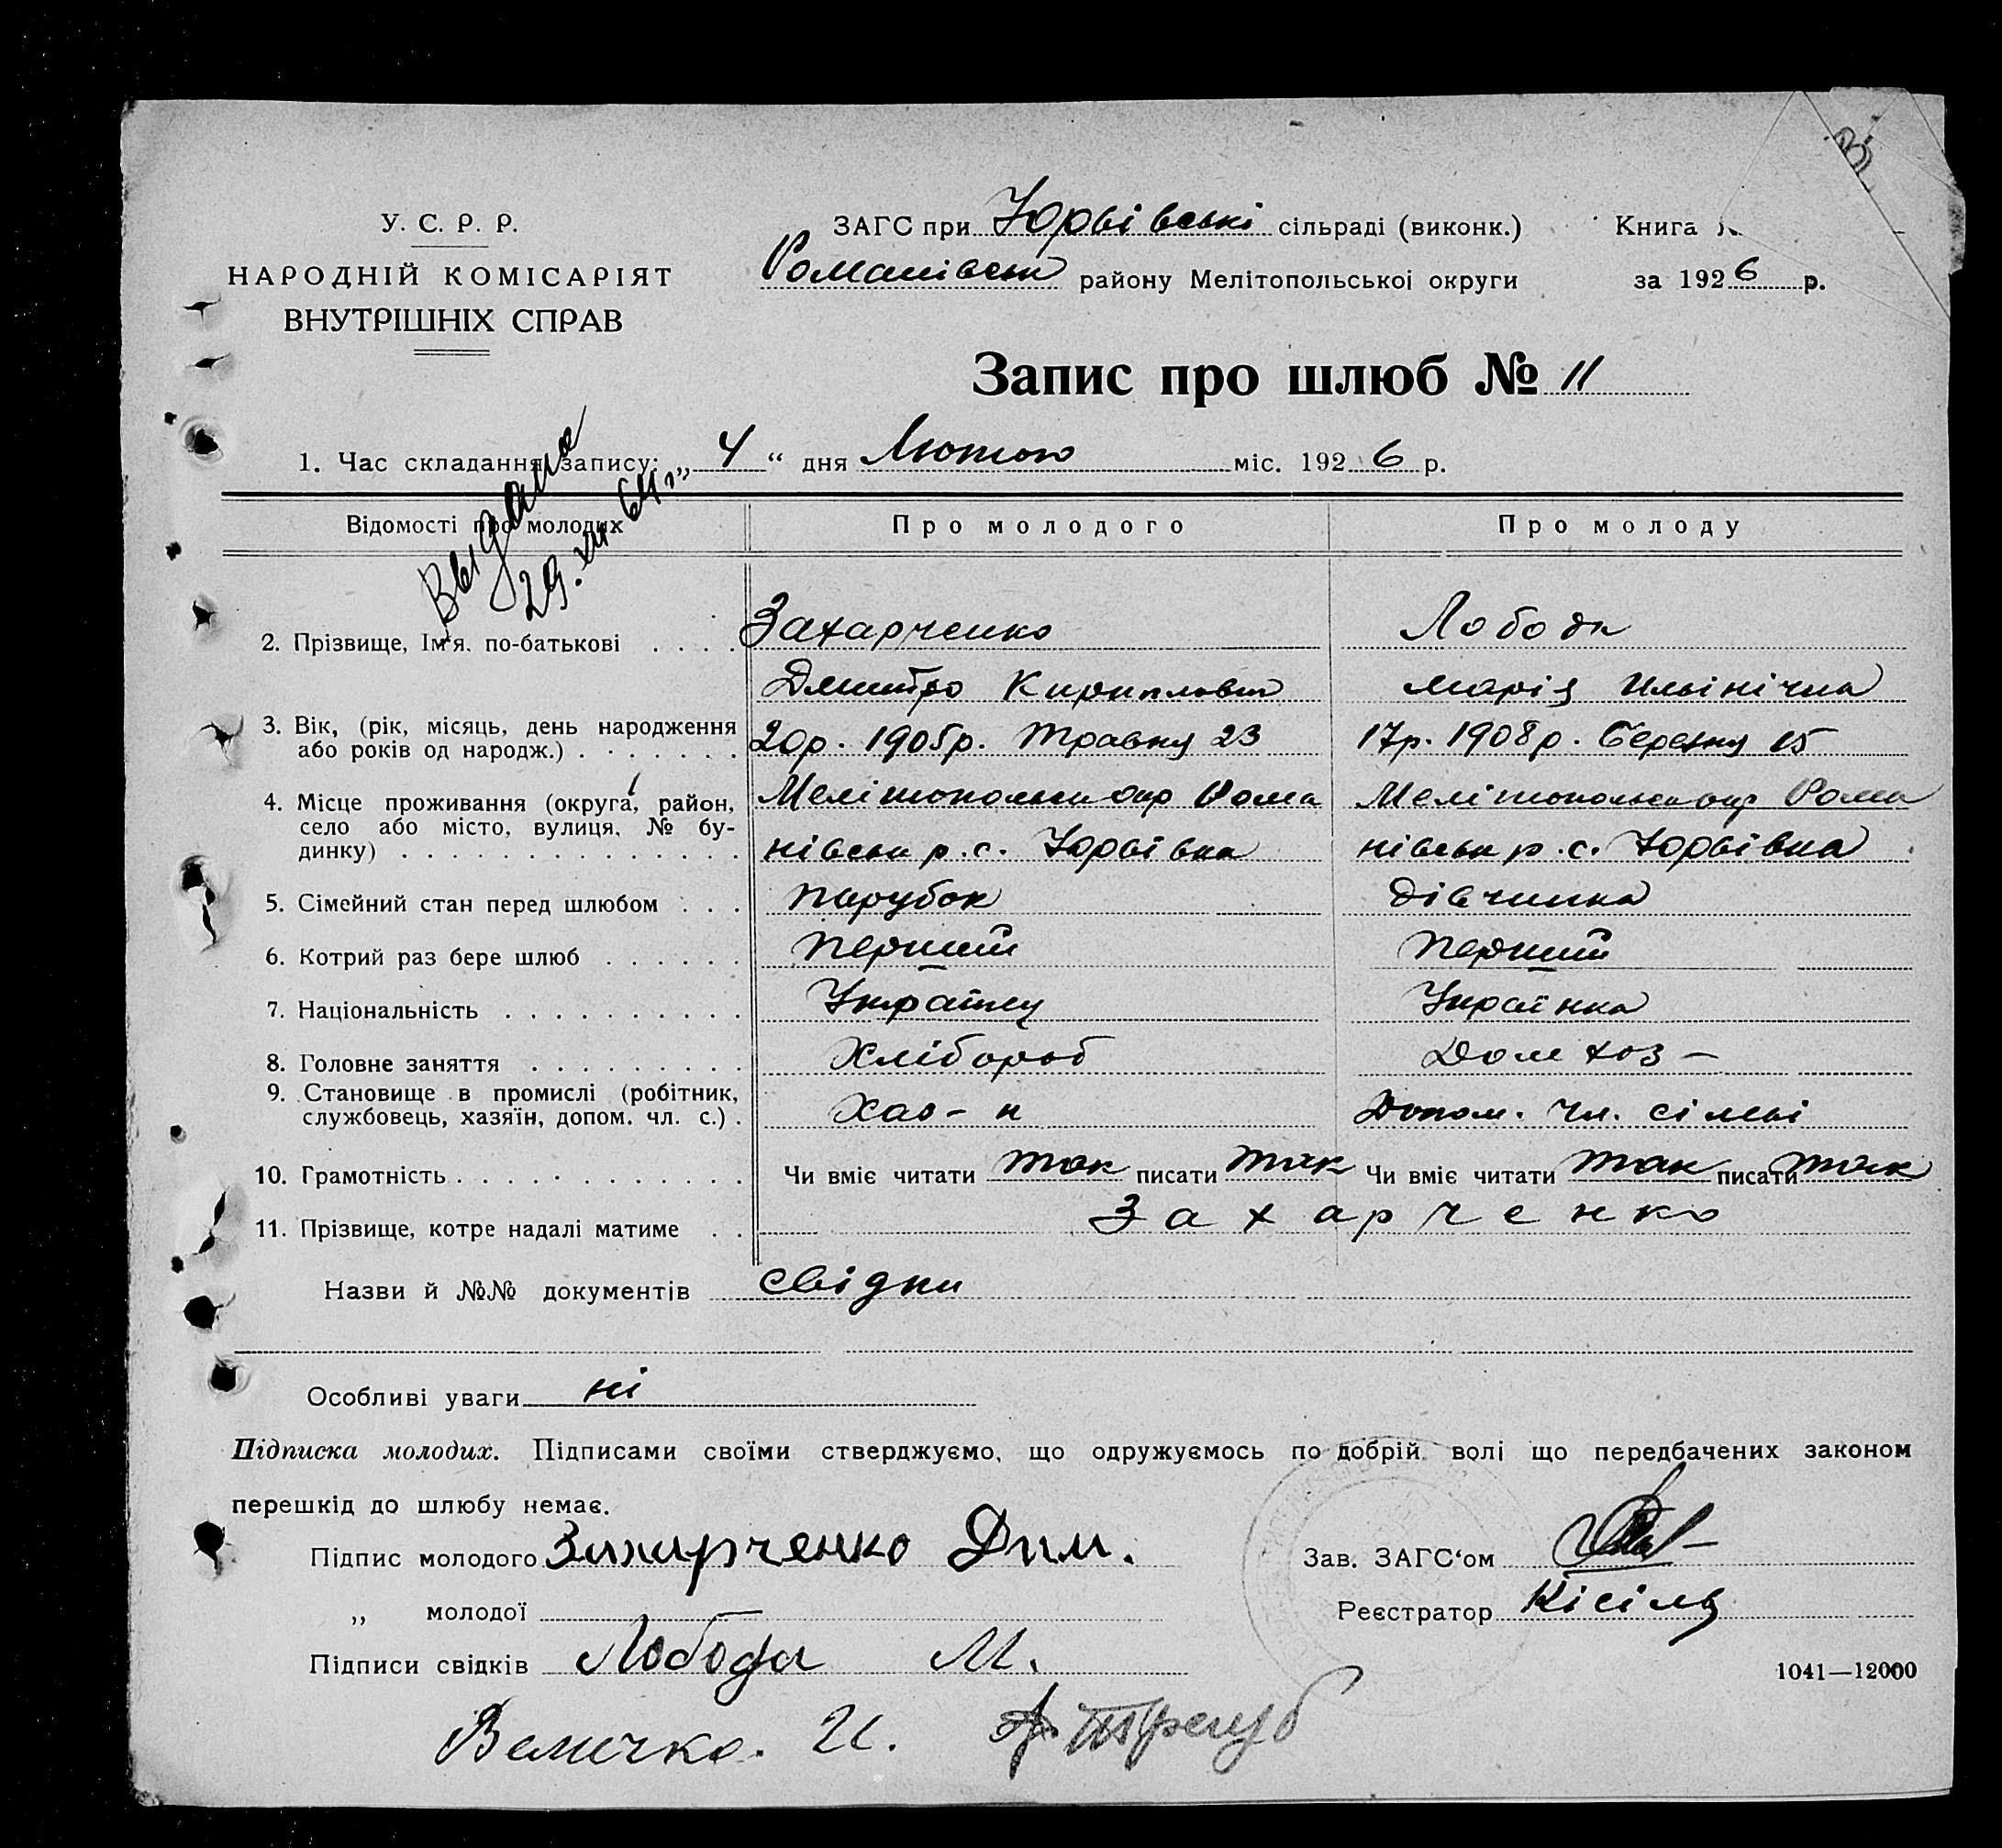 У. С. Р. Р.
НАРОДНІЙ КОМІСАРІЯТ
ВНУТРІШНІХ СПРАВ
ЗАГС при Юрьівські сільраді (виконк.)
Романівськ району Мелітопольської округи
Книга
за 1926 р.
Запис про шлюб № 11
1. Час складання запису: „ 4 “ дня Лютого міс. 1926 р.
Выдано
29. XII. 64 г.
Відомості про молодих Про молодого Про молоду
2. Прізвище, Ім'я, по-батькові . . . . Захарченко Лобода
Дмитро Кирилович Марія Ильінічна
3. Вік, (рік, місяць, день народження
або років од народж.) . . . . . . . 20р. 1905р. Травня 23 17р. 1908р. Березня 15
4. Місце проживання (округа, район,
село або місто, вулиця, № бу-
динку) . . . . . . . . . . . . . .
Мелітопольськ окр Рома Мелітопольськ окр Рома
нівськ р. с. Юрьівка нівськ р. с. Юрьівка
5. Сімейний стан перед шлюбом . . . парубок дівчинка
6. Котрий раз бере шлюб . . . . . . перший перший
7. Національність . . . . . . . . . . Українец Українка
8. Головне заняття . . . . . . . . . Хлібороб Дом хоз –
9. Становище в промислі (робітник,
службовець, хазяїн, допом. чл. с.) . Хаз – н Допом. чл. сімьі
10. Грамотність . . . . . . . . . . . . Чи вміє читати так писати так Чи вміє читати так писати так
11. Прізвище, котре надалі матиме . . Захарченко
Назви й №№ документів свідки
Особливі уваги ні
Підписка молодих. Підписами своїми стверджуємо, що одружуємось по добрій волі що передбачених законом
перешкід до шлюбу немає.
Підпис молодого Захарченко Дим. Зав. ЗАГС‘ом
„ молодої Реєстратор Кісіль
Підписи свідків Лобода М.
1041—12000
Величко. И. А. Трегуб